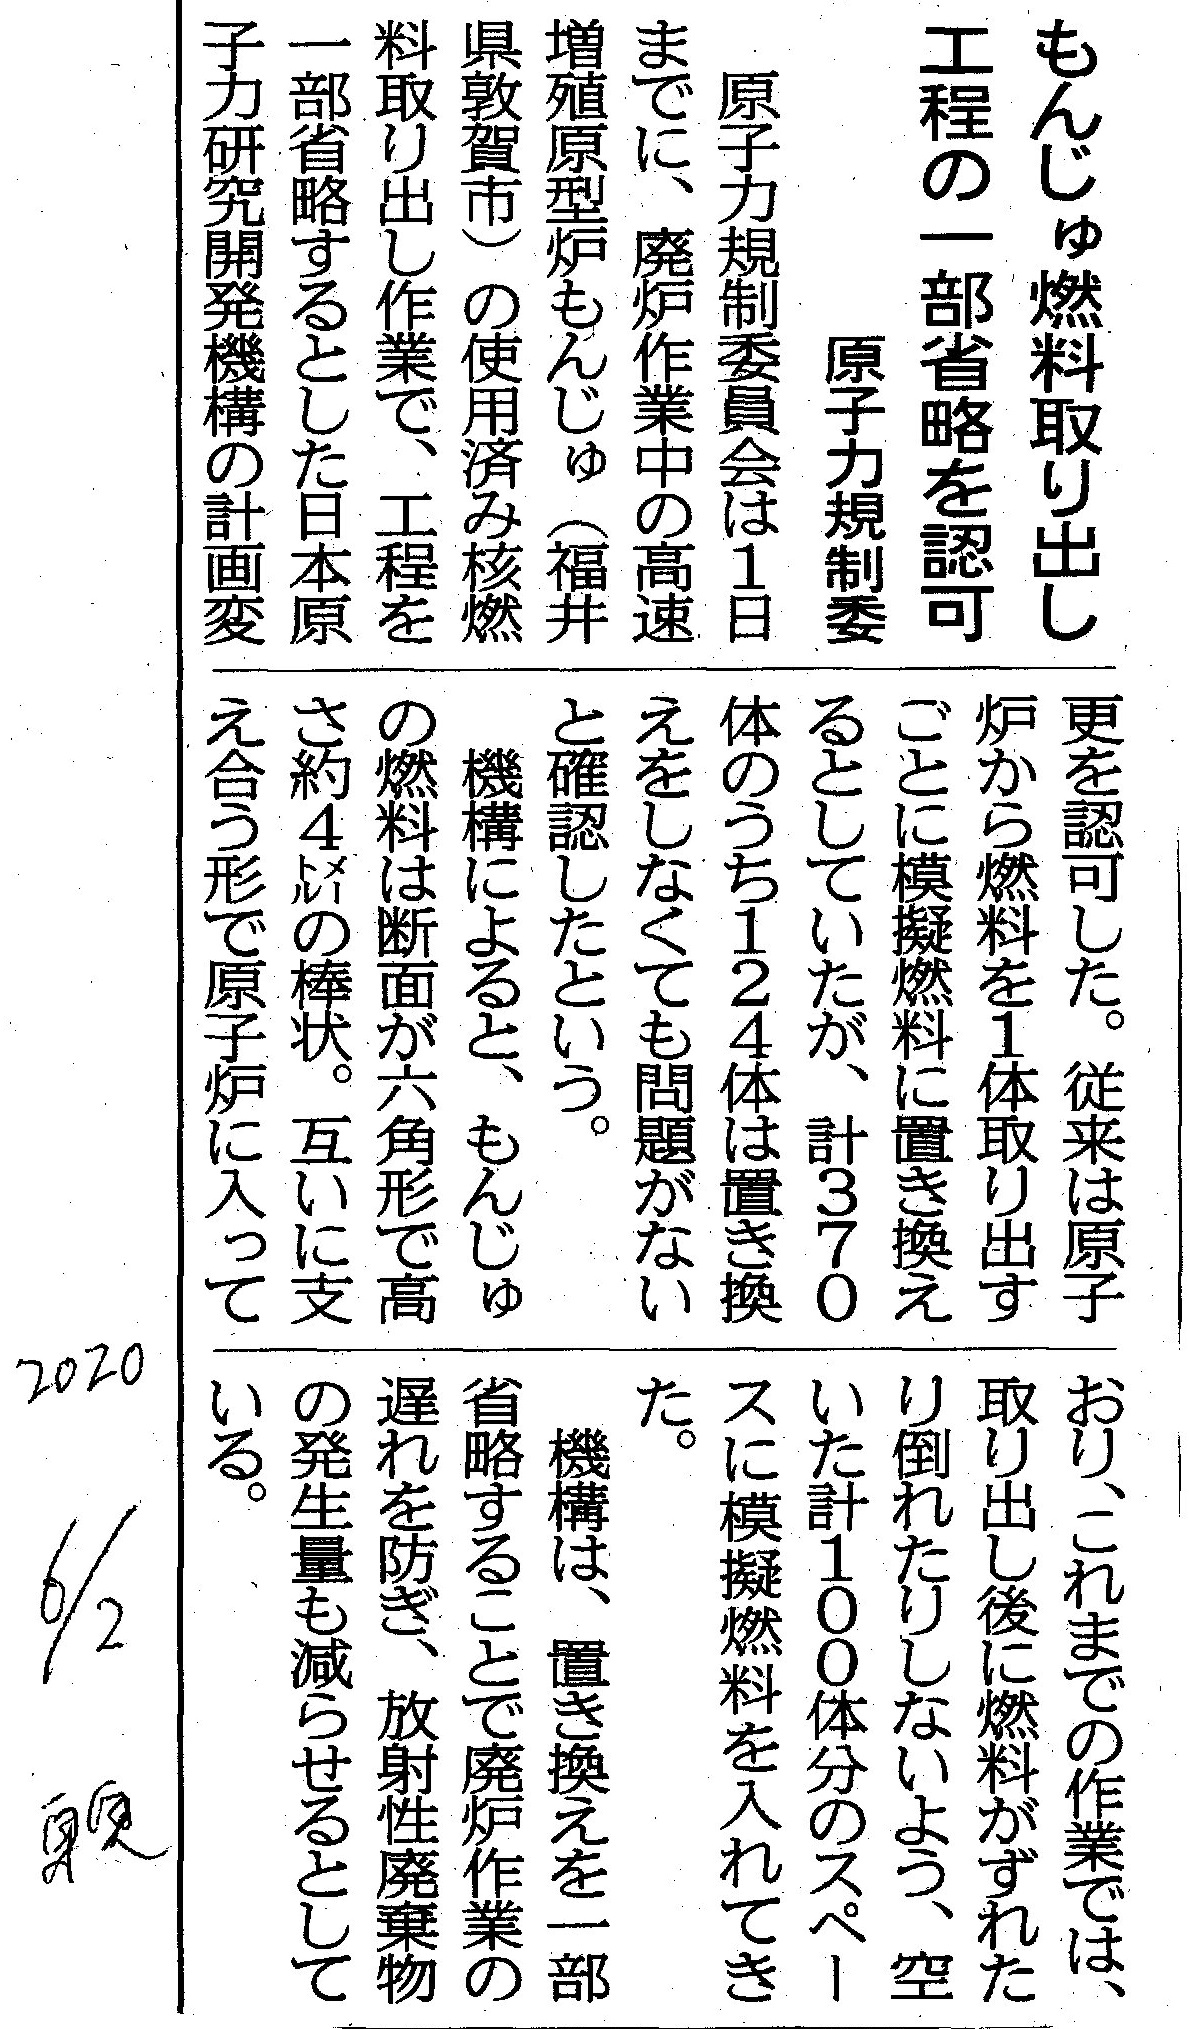 もんじゅ燃料取り出し
工程の一部省略を認可
原子力規制委
原子力規制委員会は1日
までに、廃炉作業中の高速
増殖原型炉もんじゅ（福井
県敦賀市）の使用済み核燃
料取り出し作業で、工程を
一部省略するとした日本原
子力研究開発機構の計画変
更を認可した。従来は原子
炉から燃料を1体取り出す
ごとに模擬燃料に置き換え
るとしていたが、計370
体のうち124体は置き換
えをしなくても問題がない
と確認したという。
機構によると、もんじゅ
の燃料は断面が六角形で高
さ約4㍍の棒状。互いに支
え合う形で原子炉に入って
おり、これまでの作業では、
取り出し後に燃料がずれた
り倒れたりしないよう、空
いた計100体分のスペー
スに模擬燃料を入れてき
た。
機構は、置き換えを一部
省略することで廃炉作業の
遅れを防ぎ、放射性廃棄物
の発生量も減らせるとして
いる。
2020
6/2